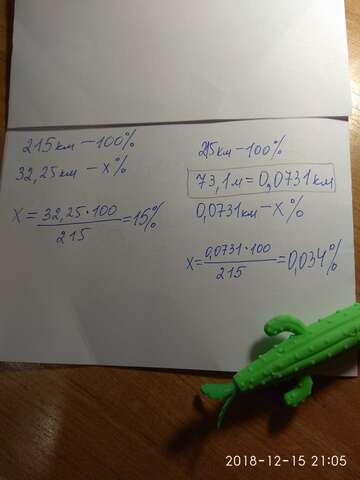 215км – 100%
32,25км – x%
x = 32,25·100 / 215 = 15%
215км – 100%
73,1м = 0,0731км
0,0731км – x%
x = 0,0731·100 / 215 = 0,034%
2018-12-15 21:05